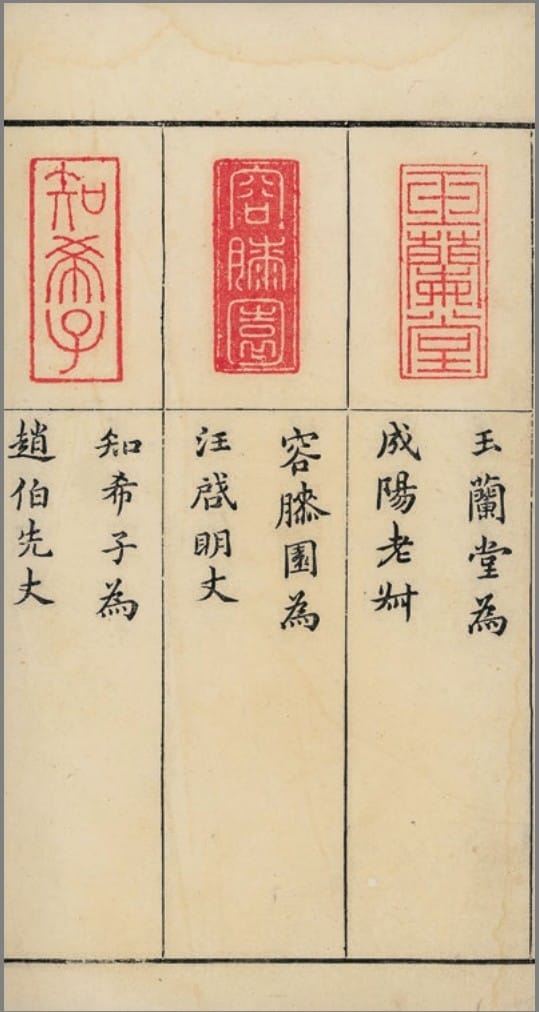 玉蘭堂
玉蘭堂為
成陽老
容膝園
容膝園為
汪啓明丈
知希子
知希子為
趙伯先丈